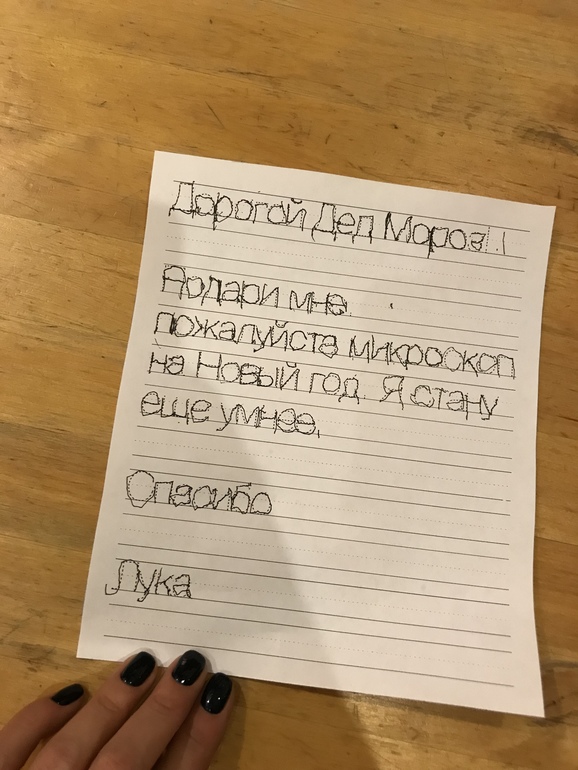 Дорогой Дед Мороз!
Подари мне
пожалуйста микроскоп
на Новый год. Я стану
еще умнее.
Спасибо
Лука